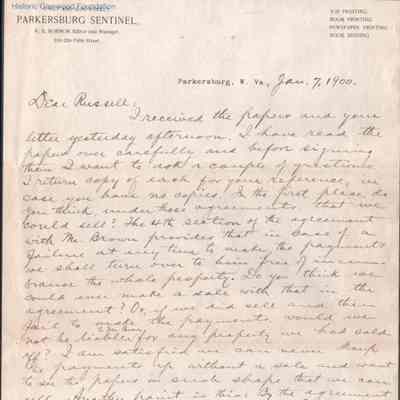 Historic Glenwood Foundation
PARKERSBURG SENTINEL,
Editor and Manager,
Fifth Street.
JOB PRINTING,
BOOK PRINTING,
NEWSPAPER PRINTING,
BOOK BINDING
Parkersburg, W. Va., Jan. 7, 1900.
Dear Russell,
I received the papers and your
letter yesterday afternoon. I have read the
papers over carefully and befor signing
them I want to ask a couple of questions.
I return copy of each for your reference, in
case you have no copies. In the first place, do
you think, under those agreements, that we
could sell? The 4th section of the agreement
with Mr. Brown provides that in case of a
failure at any time to make the payments
we shall turn over to him free of incum-
brance the whole property. Do you think we
could ever make a sale with that in the
agreement? Or, if we did sell and then
fail to make the payments would we
not be liable to the buyer for any property we had sold
off? I am satisfied we can never keep
the payments up without a sale and want
to see the papers in such shape that we can
sell. Another point is this: By the agreement